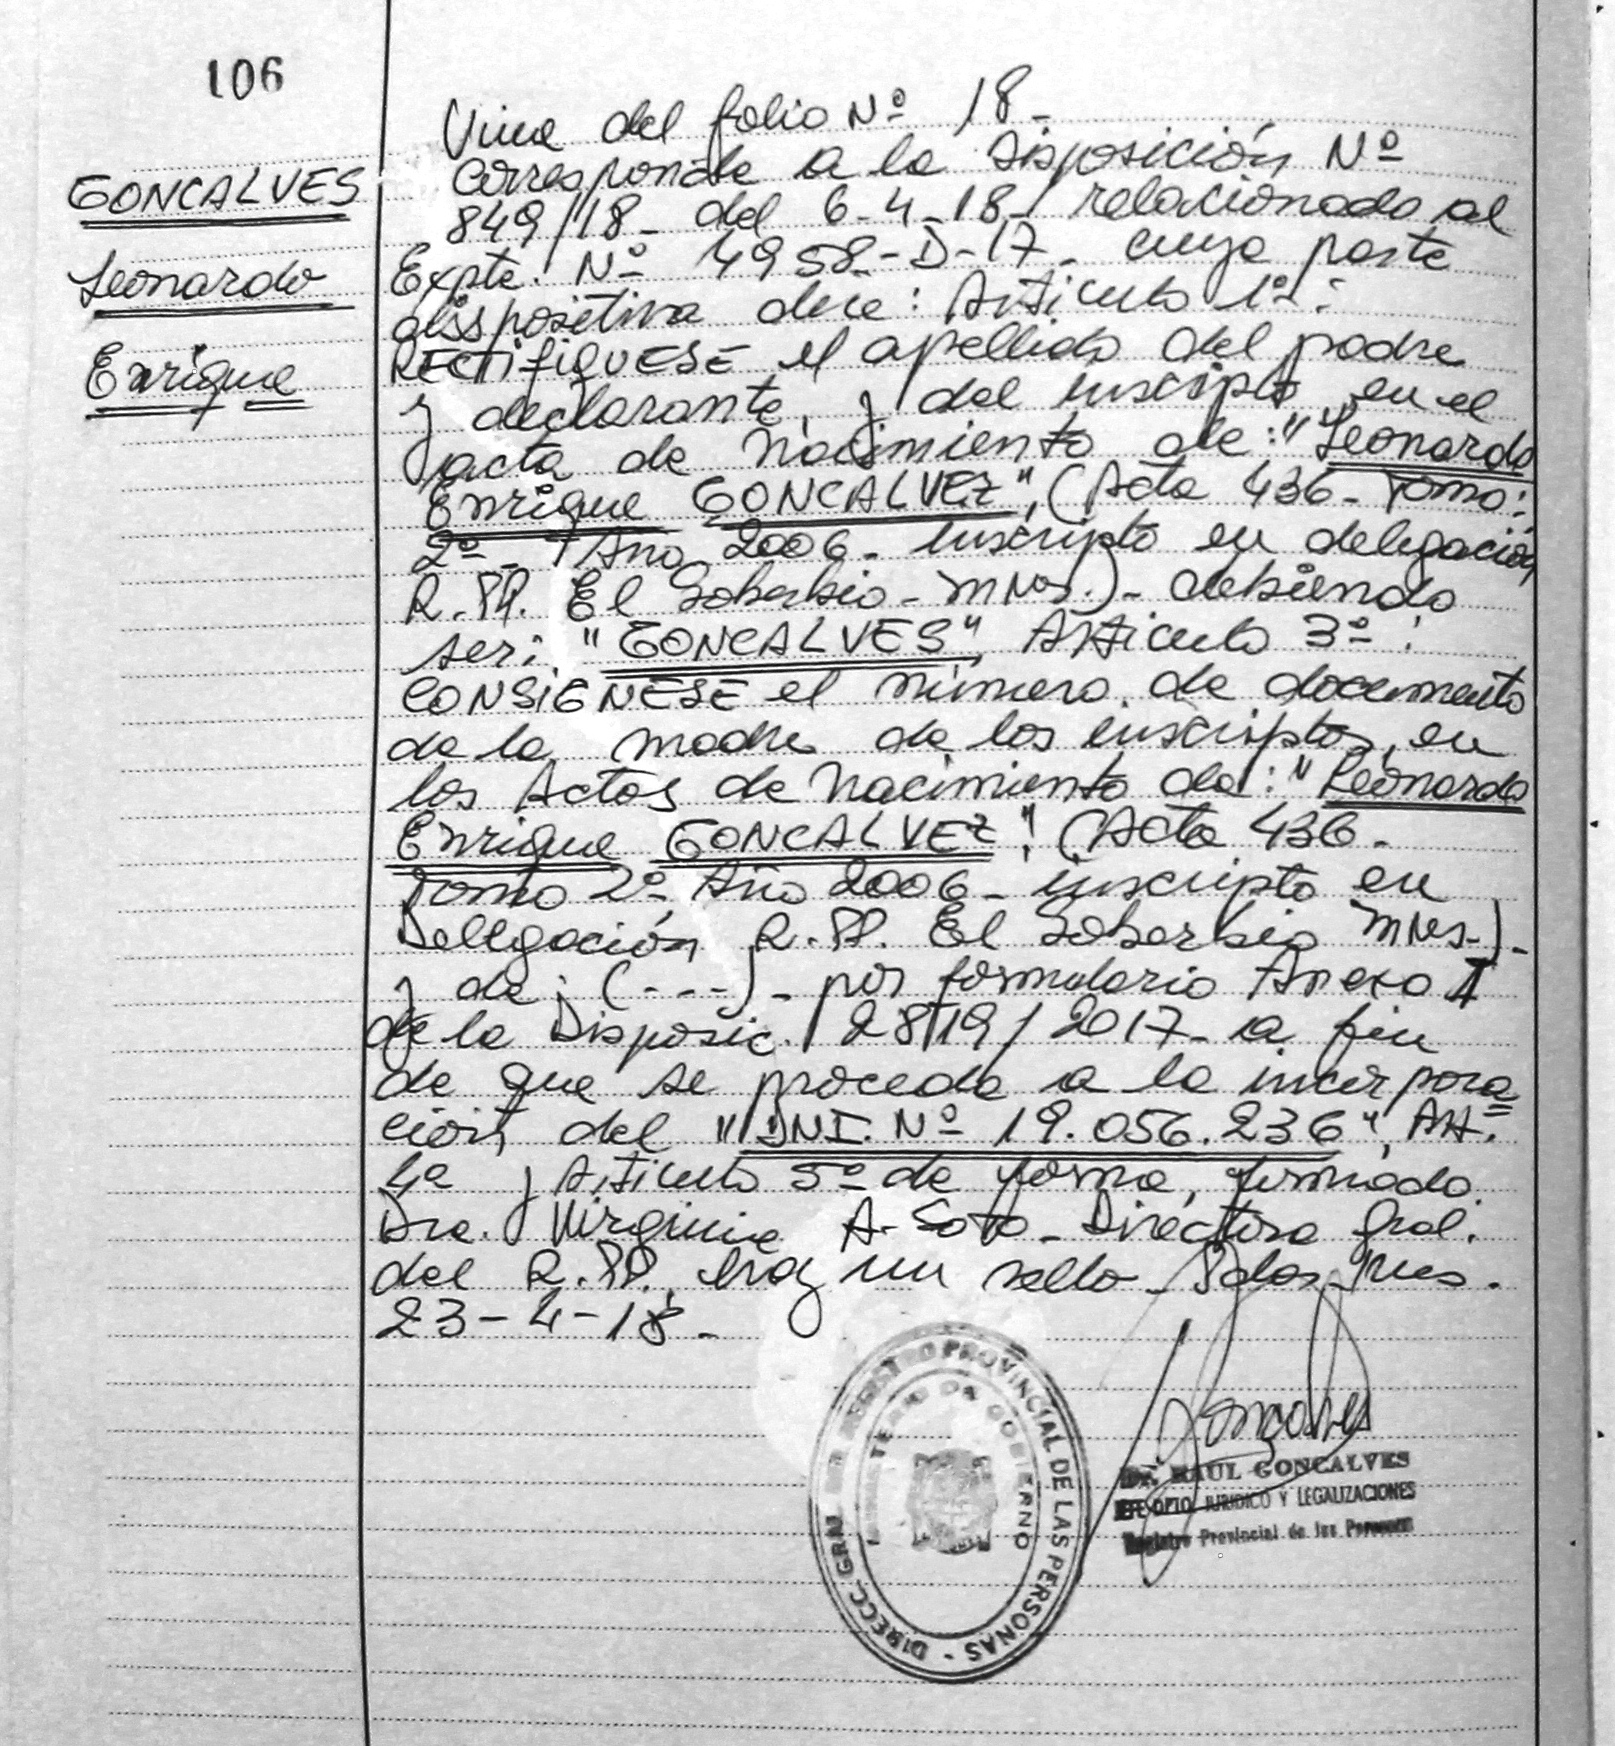 106
GONCALVES
Leonardo
Enrique
Viene del folio Nº 18-
Corresponde a la Disposición Nº
849/18- del 6-4-18- relacionado al
Expte. Nº 4958-D-17- cuya parte
disspositiva dice: Articulo 1º:
RECTIFIQUESE el apellido del padre
y declarante, y del inscripto en el
acta de Nacimiento de: "Leonardo
Enrique GONCALVEZ", (Acta 436- Tomo:
2º- Año 2006- inscripto en delegación
R.PP. El Soberbio-Mnes.)- debiendo
ser: "GONCALVES", Articulo 3º:
CONSIGNESE el número de documento
de la madre de los inscriptos, en
las Actas de Nacimiento de: "Leonardo
Enrique GONCALVEZ", (Acta 436-
Tomo 2º- Año 2006- inscripto en
Delegación R.PP. El Soberbio Mnes-)-
y de: (---)- por formulario Anexo I
de la Disposic. 2819/2017- a fin
de que se proceda a la incorpora=
ción del "DNI. Nº 19.056.236", Art.
4º y Articulo 5º de forma, firmado.
Dra. Virginia A. Soto- Directora Gral.
del R.PP. hay un sello- Pdas-Mnes.
23-4-18-
DIRECC. GRAL DEL REGISTRO PROVINCIAL DE LAS PERSONAS -
MINISTERIO DE GOBIERNO
Goncalves
Dr. RAUL GONCALVES
JEFE DPTO. JURIDICO Y LEGALIZACIONES
Registro Provincial de las Personas